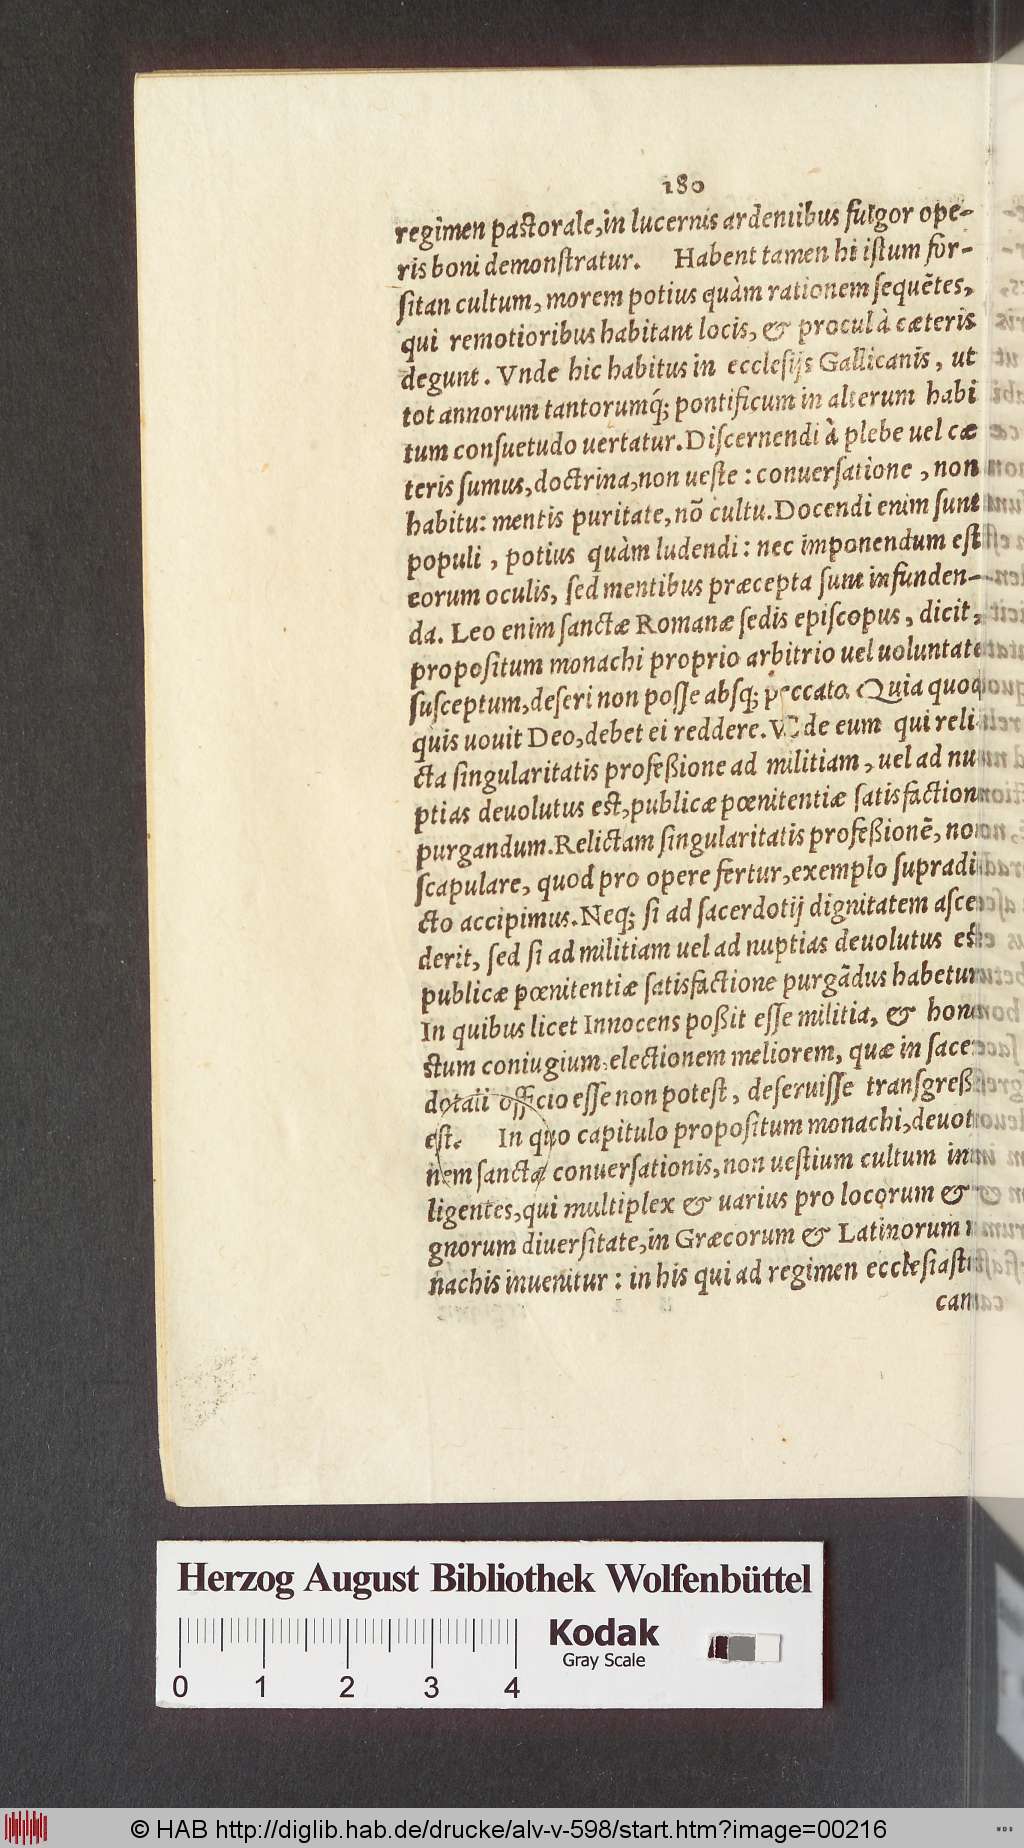 180
regimen pastorale, in lucernis ardentibus fulgor ope-
ris boni demonſtratur. Habent tamen hi iſtum for-
ſitan cultum, morem potius quàm rationem ſequẽtes,
qui remotioribus habitant locis, & procul à cæteris
degunt. Vnde hic habitus in eccleſijs Gallicanis, ut
tot annorum tantorumq́; pontificum in alterum habi
tum conſuetudo uertatur. Diſcernendi à plebe uel cæ
teris ſumus, doctrina, non ueſte: conuerſatione, non
habitu: mentis puritate, nõ cultu. Docendi enim ſunt
populi, potius quàm ludendi: nec imponendum eſt
eorum oculis, ſed mentibus præcepta ſunt infunden-
da. Leo enim ſanctæ Romanæ ſedis epiſcopus, dicit,
propoſitum monachi proprio arbitrio uel uoluntate
ſuſceptum, deſeri non poſſe abſq; peccato. Quia quod
quis uouit Deo, debet ei reddere. Vnde eum qui reli
cta ſingularitatis profeßione ad militiam, uel ad nu
ptias deuolutus eſt, publicæ pœnitentiæ satisfaction
purgandum. Relictam ſingularitatis profeßionẽ, non
ſcapulare, quod pro opere fertur, exemplo ſupradi
cto accipimus. Neq; ſi ad ſacerdotij dignitatem aſce
derit, ſed ſi ad militiam uel ad nuptias deuolutus est
publicæ pœnitentiæ ſatisfactione purgãdus habetur
In quibus licet Innocens poßit eſſe militia, & hone
ſtum coniugium, electionem meliorem, quæ in ſacer
dotali officio eſſe non poteſt, deſeruiſſe transgreß
eſt. In quo capitulo propoſitum monachi, deuot
nem ſanctæ conuerſationis, non ueſtium cultum in
ligentes, qui multiplex & uarius pro locorum &
gnorum diuerſitate, in Græcorum & Latinorum
nachis inuenitur: in his qui ad regimen eccleſiaſti
can
Herzog August Bibliothek Wolfenbüttel
Kodak
Gray Scale
0 1 2 3 4
© HAB http://diglib.hab.de/drucke/alv-v-598/start.htm?image=00216